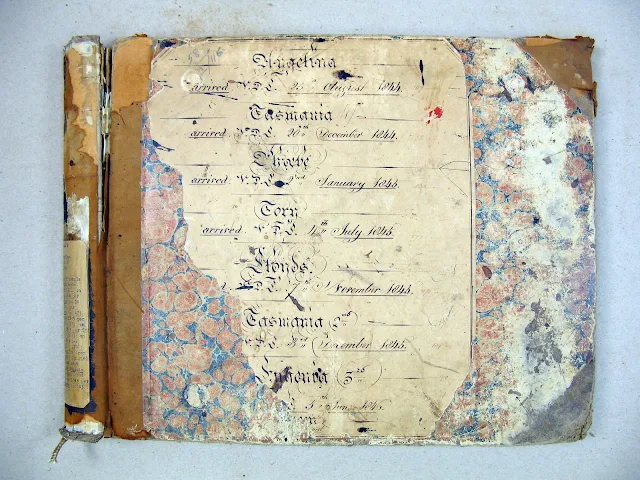 Angelina
arrived V.D.L. 25th August 1844.
Tasmania
arrived V.D.L. 20th December 1844.
Phoebe
arrived V.D.L. 2nd January 1845.
Tory
arrived V.D.L. 4th July 1845.
Lloyds.
V.D.L. 7th November 1845.
Tasmania (2nd)
V.D.L. 3rd December 1845.
(3rd)
5th June 1846.